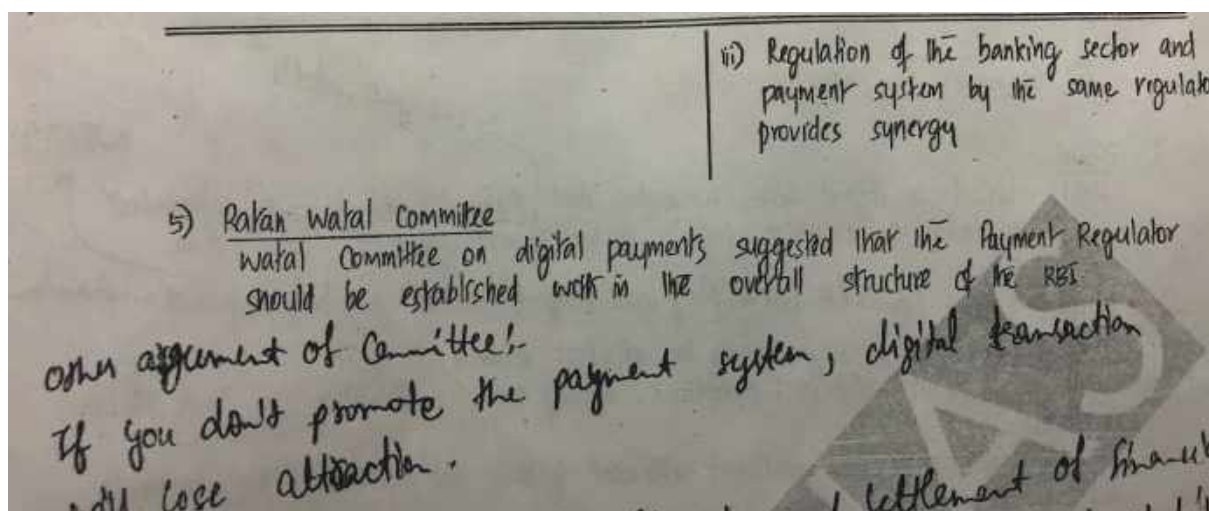 iii) Regulation of the banking sector and
payment system by the same regulato
provides synergy
5) Ratan Watal Committee
Watal Committee on digital payments suggested that the Payment Regulator
should be established with in the overall structure of the RBI
other argument of Committee:-
If you don't promote the payment system, digital transaction
will lose attraction.
settlement of financi
AS